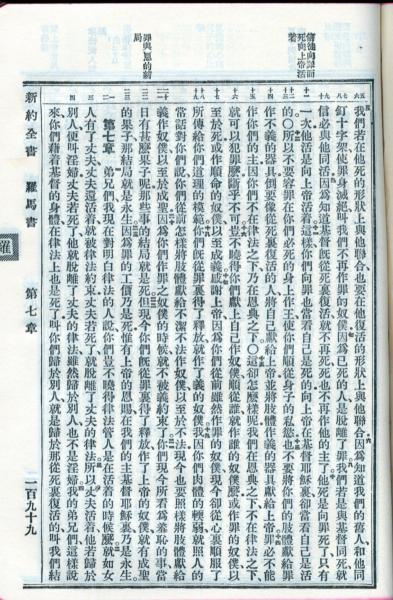 當向罪而
死向上帝活
着
罪與恩的結
局
我們若在他死的形狀上與他聯合也要在他復活的形狀上與他聯合因爲知道我們的舊人和他同
釘十字架使罪身滅絕叫我們不再作罪的奴僕因爲已死的人是脫離了罪我們若是與基督同死就
信必與他同活因爲知道基督旣從死裏復活就不再死死也不再作他的主了他死是向罪死了只有
一次他活是向上帝活着這樣你們向罪也當看自己是死的向上帝在基督耶穌裏卻當看自己是活
的〇所以不要容罪在你們必死的身上作王使你們順從身子的私慾也不要將你們的肢體獻給罪
作不義的器具倒要像從死裏復活的人將自己獻給上帝並將肢體作義的器具獻給上帝罪必不能
作你們的主因你們不在律法之下乃在恩典之下〇這卻怎麼樣呢我們在恩典之下不在律法之下
就可以犯罪麼斷乎不可豈不曉得你們獻上自己作奴僕順從誰就作誰的奴僕麼或作罪的奴僕以
至於死或作順命的奴僕以至成義感謝上帝因爲你們從前雖然作罪的奴僕現今卻從心裏順服了
所傳給你們道理的模範你們旣從罪裏得了釋放就作了義的奴僕我因你們肉體的輕弱就照人的
常話對你們說你們從前怎樣將肢體獻給不潔不法作奴僕以至於不法現今也要照樣將肢體獻給
義作奴僕以至於成聖因爲你們作罪之奴僕的時候就不被義約束了你們現今所看爲羞恥的事當
日有甚麼果子呢那些事的結局就是死但現今你們旣從罪裏得了釋放作了上帝的奴僕就有成聖
的果子那結局就是永生因爲罪的工價乃是死惟有上帝的恩賜在我們的主基督耶穌裏乃是永生
第七章 弟兄們我現在對明白律法的人說你們豈不曉得律法管人是在活着的時候麼就如女
人有了丈夫丈夫還活着就被律法約束丈夫若死了就脫離了丈夫的律法所以丈夫活着他若歸於
別人便叫淫婦丈夫若死了他就脫離了丈夫的律法雖然歸於別人也不是淫婦我的弟兄們這樣說
來你們藉着基督的身體在律法上也是死了叫你們歸於別人就是歸於那從死裏復活的叫我們結
新約全書 羅馬書 第七章 一百九十九
羅